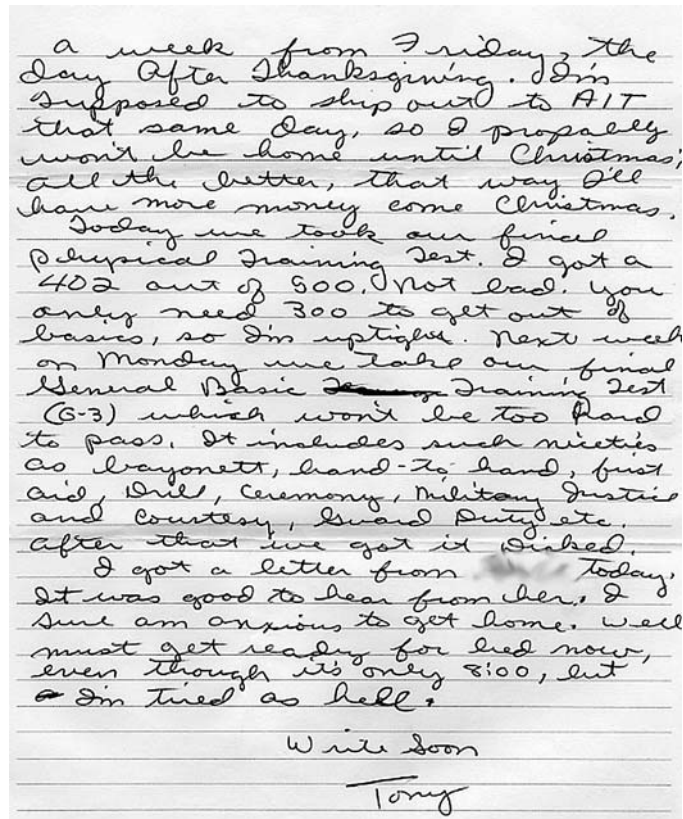 a week from Friday, the
day After Thanksgining. I'm
supposed to ship out to AIT
that same day, so I propally
won't be home until Christmas;
all the better, that way I'll
have more money come Christmas.
Today we took our final
physical Training Test. I got a
402 out of 500. Not bad. you
only need 300 to get out of
basics, so I'm uptight. Next week
on Monday we take our final
General Basic Training Test
(G-3) which won't be too hard
to pass. It includes such niceties
as bayonett, hand-to hand, first
aid, Drill, Ceremony, Military Justice
and Courtesy, Guard Duty etc.
after that we got it Disked.
I got a letter from today.
It was good to hear from her. I
sure am anxious to get home. well
must get ready for bed now,
even though it's only 8:00, but
I'm tired as hell.
Write Soon
Tony